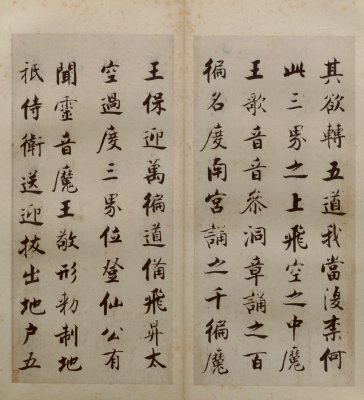 其欲轉五道我當復柰何
此三界之上飛空之中魔
王歌音音參洞章誦之百
徧名度南宮誦之千徧魔
王保迎萬徧道備飛昇太
空過度三界位登仙公有
聞靈音魔王敬形勑制地
祇侍衛送迎拔出地户五